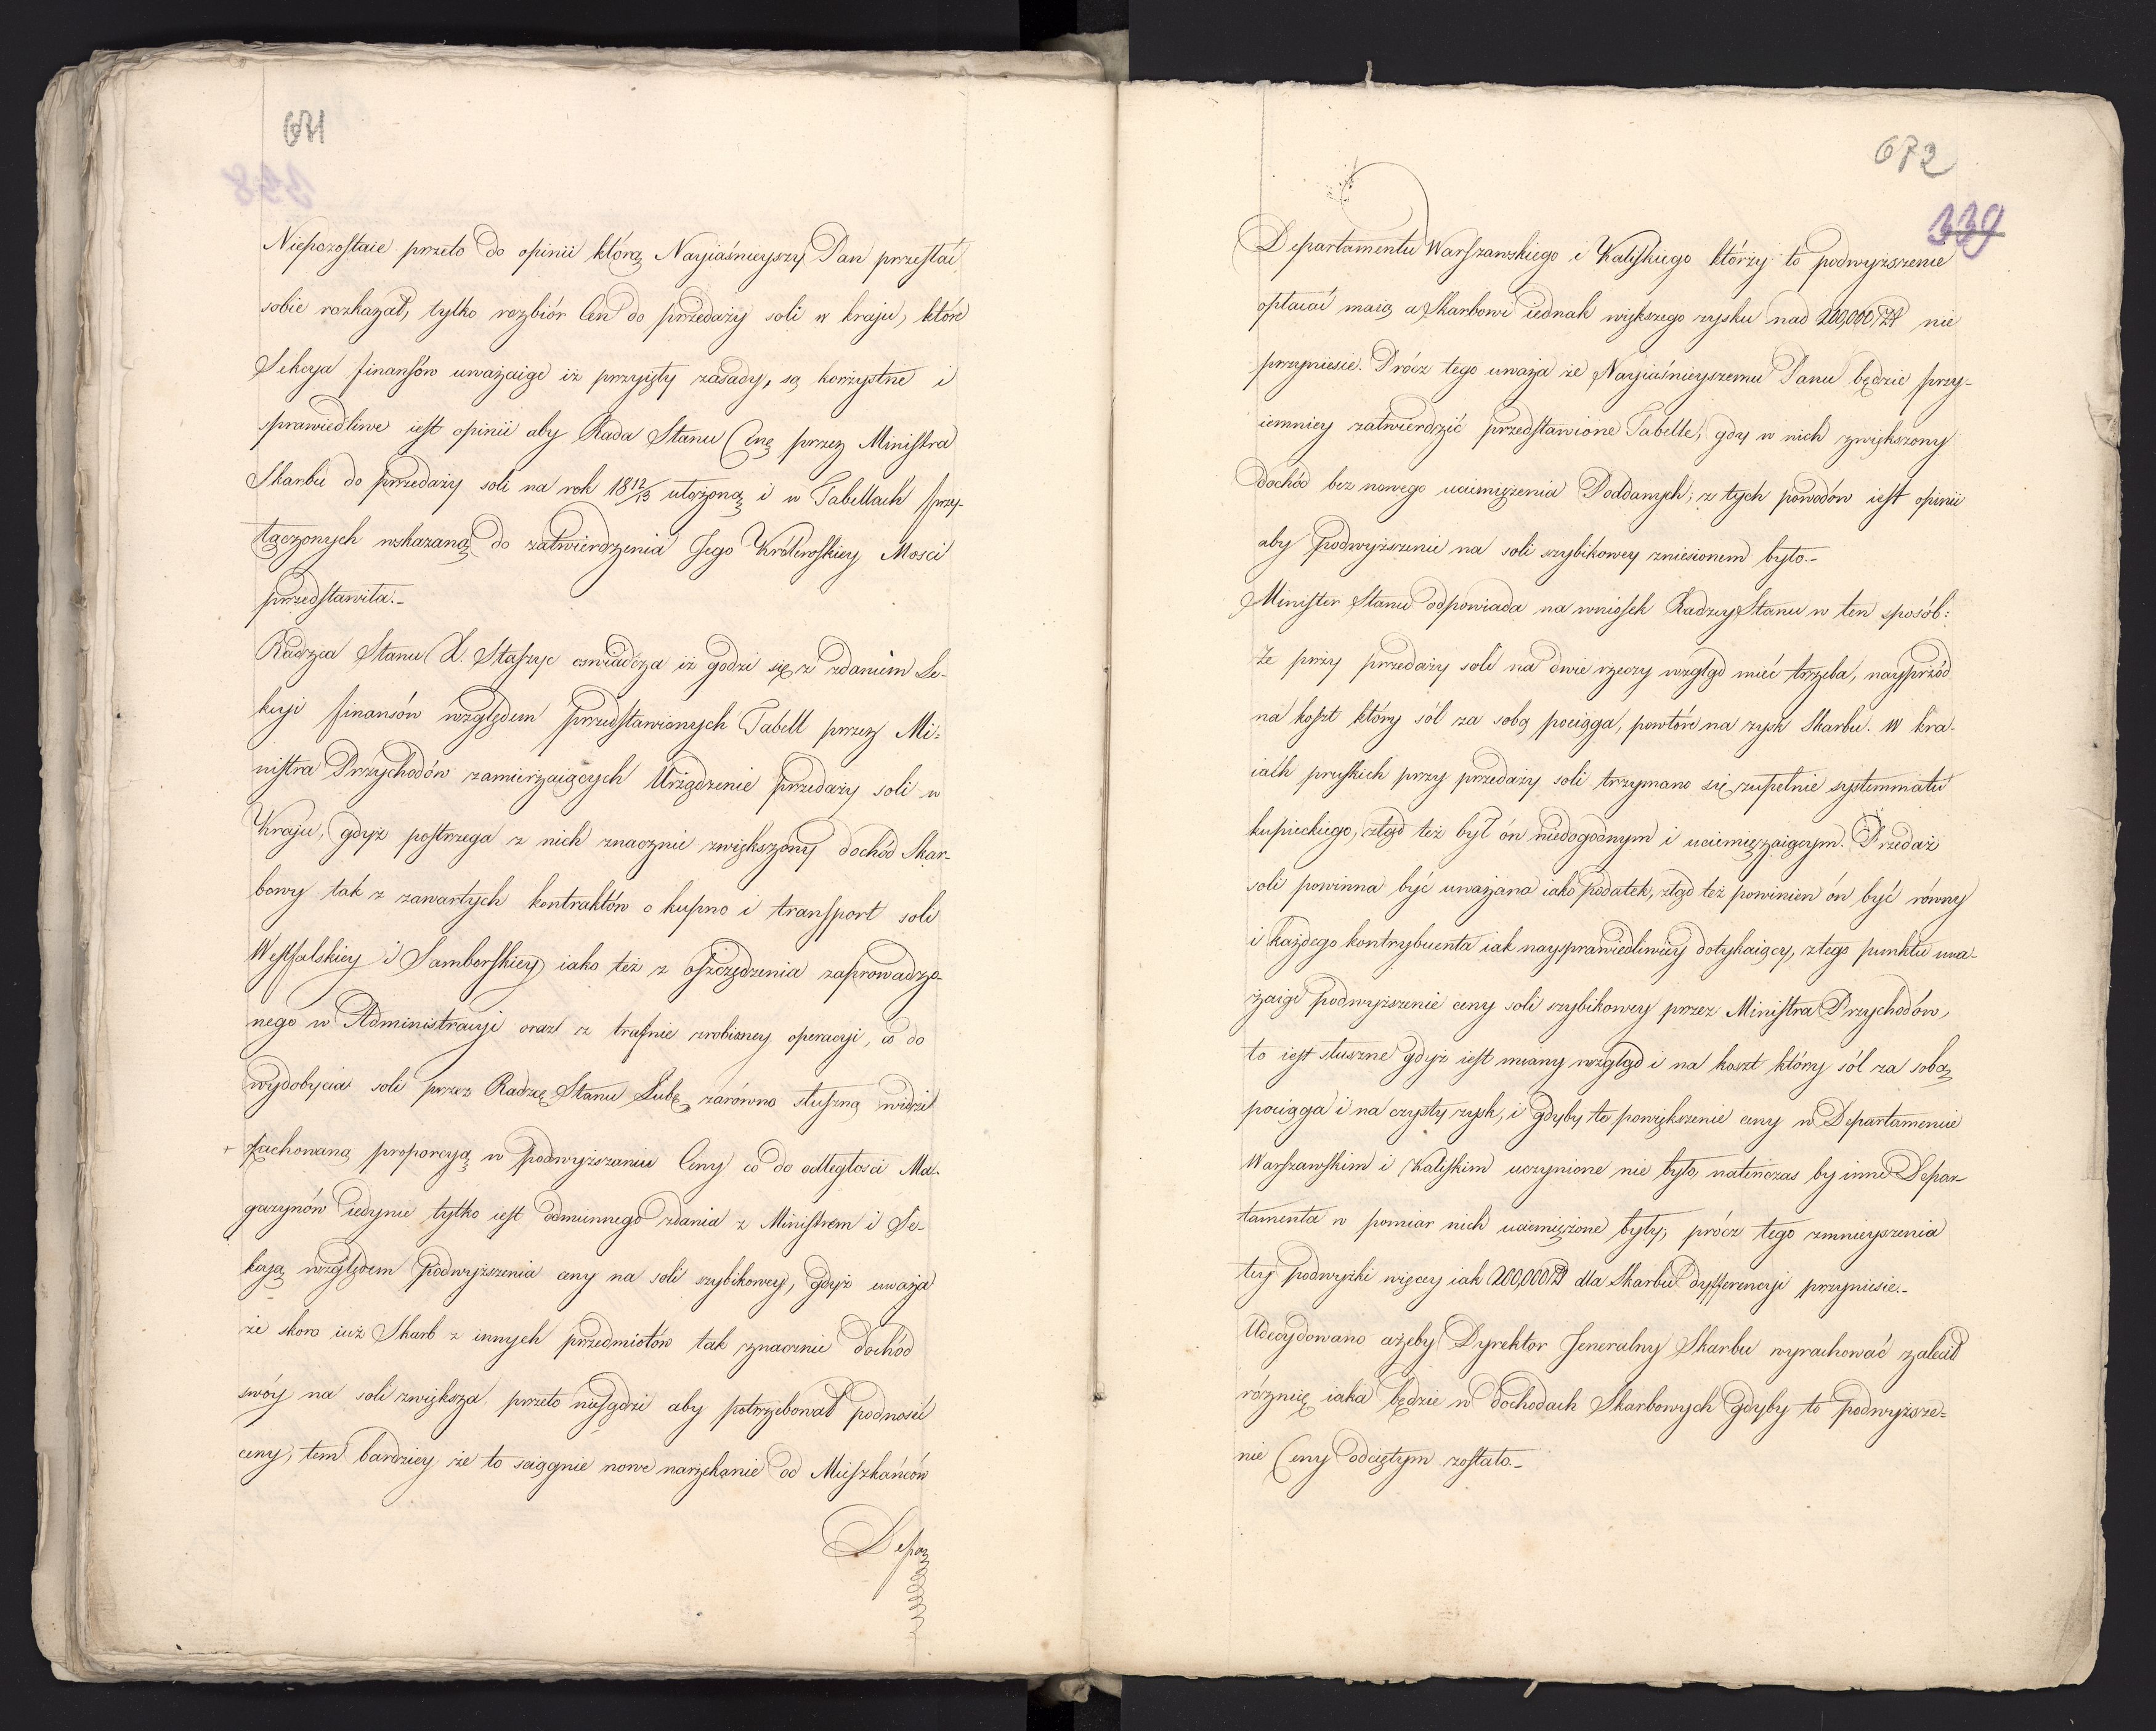 671
Niepozostaie przeto do opinii którą Nayiaśnieyszy Pan przesłać
sobie rozkazał, tylko rozbiór Cen do przedaży soli w kraju, które
Sekcya finansów uważaiąc iż przyięty zasady, są korzystne i
sprawiedliwe iest opinii aby Rada Stanu Cenę przez Ministra
Skarbu do przedaży soli na rok 18 12/13 ułożoną i w Tabellach przy-
łączonych wskazaną do zatwierdzenia Jego Królewskiey Mości
przedstawiła.-
Radzca Stanu X. Staszyc oświadcza iż godzi się z zdaniem Se-
kcyi finansów względem przedstawionych Tabell przez Mi-
nistra Przychodów zamierzaiących Urządzenie przedaży soli w
Kraju, gdyż postrzega z nich znacznie zwiększony dochód Skar-
bowy tak z zawartych kontraktów o kupno i transport soli
Westfalskiey i Samborskiey iako też z oszczędzenia zaprowadzo-
nego w Administracyi oraz z trafnie zrobioney operacyi, co do
wydobycia soli przez Radzcę Stanu Lubę, zarówno słuszną widzi
+ zachowaną proporcyą w podwyższaniu Ceny co do odległości Ma-
gazynów iedynie tylko iest odmiennego zdania z Ministrem i Se-
kcyą względem podwyższenia ceny na soli szybikowey, gdyż uważa
że skoro iuż Skarb z innych przedmiotów tak znacznie dochód
swóy na soli zwiększa przeto niesądzi aby potrzebował podnosić
ceny, tem bardziey że to sciągnie nowe narzekanie od Mieszkańców
Depar
672
339
Departamentu Warszawskiego i Kaliskiego którzy to podwyższenie
opłacać maią a Skarbowi iednak większego zysku nad 200,000 Zł nie
przyniesie. Prócz tego uważa że Nayiaśnieyszemu Panu będzie przy-
iemniey zatwierdzić przedstawione Tabelle, gdy w nich zwiększony
dochód bez nowego uciemiężenia Poddanych; z tych powodów iest opinii
aby podwyższenie na soli szybikowey zniesionem było.-
Minister Stanu odpowiada na wniosek Radzcy Stanu w ten sposób:
Że przy przedaży soli na dwie rzeczy wzgląd mieć trzeba, nayprzód
na koszt który sól za sobą pociąga, powtóre na zysk Skarbu. W kra-
iach pruskich przy przedaży soli trzymano się zupełnie systemmatu
kupieckiego, ztąd też był ón niedogodnym i uciemiężaiącym. Przedaż
soli powinna być uważana iako podatek, ztąd też powinien ón być równy
i każdego kontrybuenta iak naysprawiedliwiey dotykaiący, z tego punktu uwa-
żaiąc podwyższenie ceny soli szybikowey przez Ministra Przychodów,
to iest słuszne gdyż iest miany wzgląd i na koszt który sól za sobą
pociąga i na czysty zysk, i gdyby to powiększenie ceny w Departamencie
Warszawskim i Kaliskim uczynione nie było, natenczas by inne Depar-
tamenta w pomiar nich uciemiężone były; prócz tego zmnieyszenia
tey podwyżki więcey iak 200,000 Zł dla Skarbu dyfferencyi przyniesie.-
Udecydowano ażeby Dyrektor Jeneralny Skarbu wyrachować zalecił
różnicę iaka będzie w dochodach Skarbowych gdyby to podwyższe-
nie Ceny odciętym zostało.-